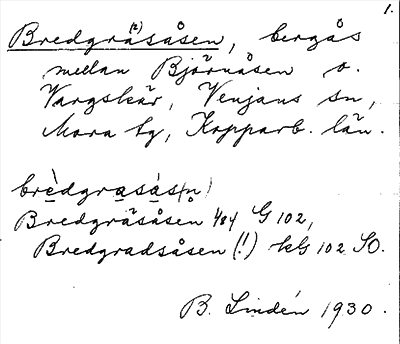 1.
Bredgräsåsen (2), bergås
mellan Björnåsen o.
Vargskär, Venjans sn,
Mora tg, Kopparb. län.
brèdgrasàs(n)
Bredgräsåsen 484 G 102,
Bredgradsåsen (!) kG 102 SO.
B. Lindén 1930.